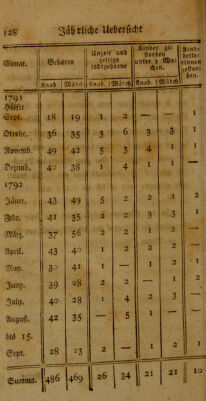 128 Jährliche Uebersicht
Monat. Geboren Unzeit und zeitige todtgeborne Kinder ge: storben unter 3 Wo: chen. Kind: better rinnen gestor: ben.
Knab. Mädch Knab. Mädch Knab. Mädch
1791
Hälfte
Sept. 18 19 1 2 — — 1
Oktobr. 36 35 3 6 3 3 1
Novemb. 49 42 5 3 4 1 1
Dezemb. 40 38 1 4 1 1 —
1792
Jäner. 43 49 5 2 2 1 2
Febr. 41 35 2 2 3 3 1
März. 37 56 2 2 1 2
April. 43 40 1 2 2 2 —
May. 30 41 1 — 1 2 1
Juny. 39 28 2 2 — 1 2
July. 40 28 1 4 2 3
August. 42 35 — 5 1 — —
bis 15.
Sept. 28 23 2 — 1 2 1
Summa. 486 469 26 34 21 21 10